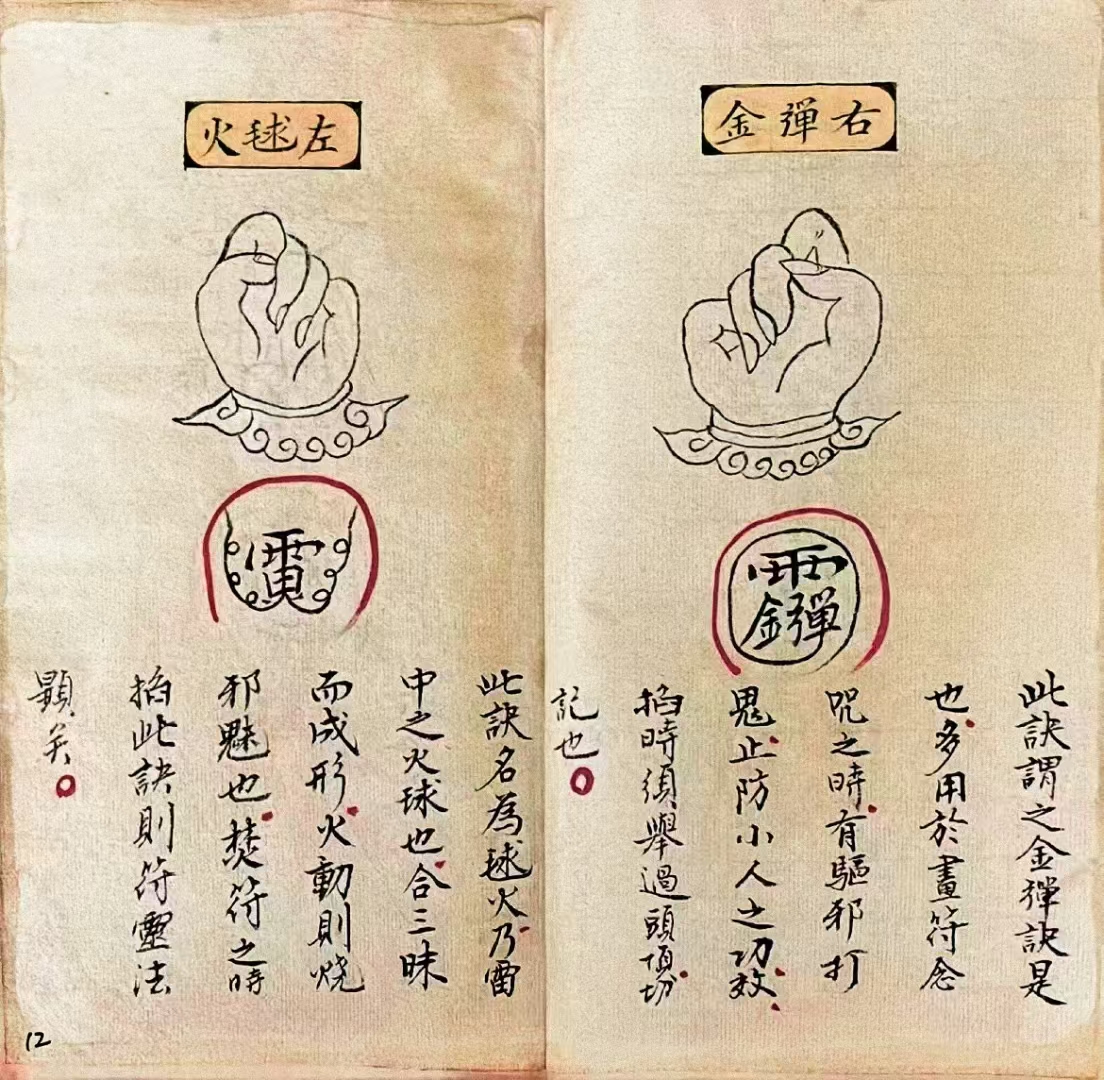 右彈金
此訣謂之金彈訣是
也多用於畫符念
咒之時有驅邪打
鬼止防小人之功效
掐時須舉過頭頂切
記也
左毬火
此訣名為毬火乃雷
中之火球也合三昧
而成形火動則燒
邪魅也焚符之時
掐此訣則符靈法
顯矣
12